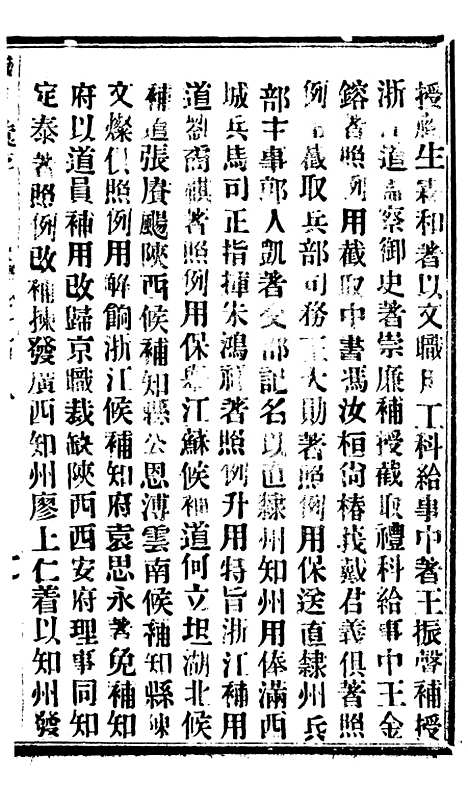 授 生霖和著以文職用工科給事中著王振聲補授
浙江道監察御史著崇廉補授截取禮科給事中王金
鎔著照例用截取中書馮汝桓尙椿 戴君義俱著照
例用截取兵部司務王大勛著照例用保送直隸州兵
部主事郭人凱著交部記名以直隸州知州用俸滿西
城兵馬司正指揮朱鴻 著照例升用特旨浙江補用
道劉喬祺著照例用保舉江蘇候補道何立坦湖北候
補道張賡颺陝西候補知縣公恩溥雲南候補知縣陳
文燦俱照例用解餉浙江候補知府袁思永著免補知
府以道員補用改歸京職裁缺陝西西安府理事同知
定泰著照例改補揀發廣西知州廖上仁着以知州發